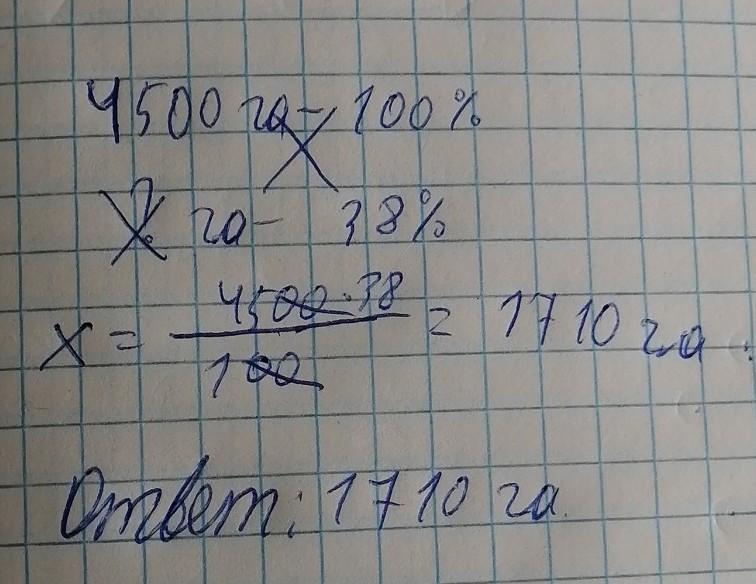 4500 га - 100%
X га - 38%
x = 4500·38 / 100 = 1710 га.
Ответ: 1710 га.